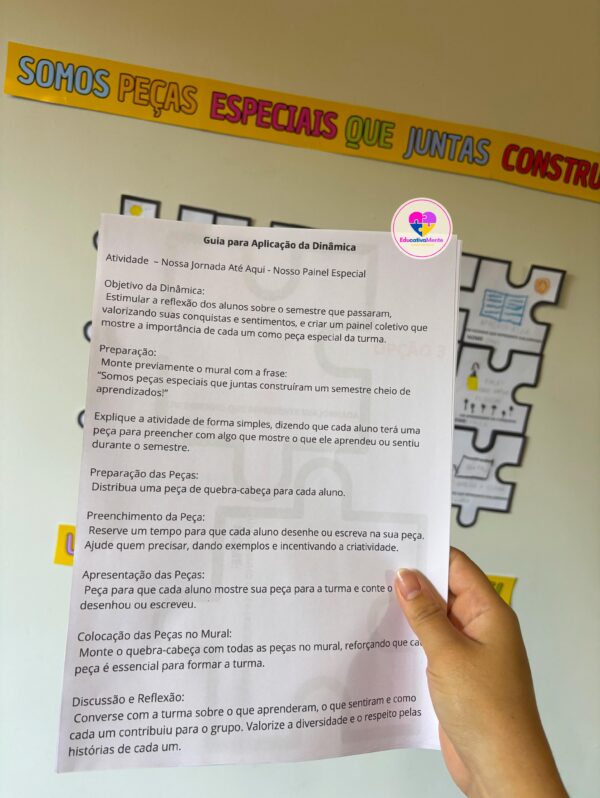 SOMOS PEÇAS ESPECIAIS QUE JUNTAS CONSTRU
EducativaMente
Guia para Aplicação da Dinâmica
Atividade – Nossa Jornada Até Aqui - Nosso Painel Especial
Objetivo da Dinâmica:
Estimular a reflexão dos alunos sobre o semestre que passaram,
valorizando suas conquistas e sentimentos, e criar um painel coletivo que
mostre a importância de cada um como peça especial da turma.
Preparação:
Monte previamente o mural com a frase:
“Somos peças especiais que juntas construíram um semestre cheio de
aprendizados!”
Explique a atividade de forma simples, dizendo que cada aluno terá uma
peça para preencher com algo que mostre o que ele aprendeu ou sentiu
durante o semestre.
Preparação das Peças:
Distribua uma peça de quebra-cabeça para cada aluno.
Preenchimento da Peça:
Reserve um tempo para que cada aluno desenhe ou escreva na sua peça.
Ajude quem precisar, dando exemplos e incentivando a criatividade.
Apresentação das Peças:
Peça para que cada aluno mostre sua peça para a turma e conte o
desenhou ou escreveu.
Colocação das Peças no Mural:
Monte o quebra-cabeça com todas as peças no mural, reforçando que ca
peça é essencial para formar a turma.
Discussão e Reflexão:
Converse com a turma sobre o que aprenderam, o que sentiram e como
cada um contribuiu para o grupo. Valorize a diversidade e o respeito pelas
histórias de cada um.